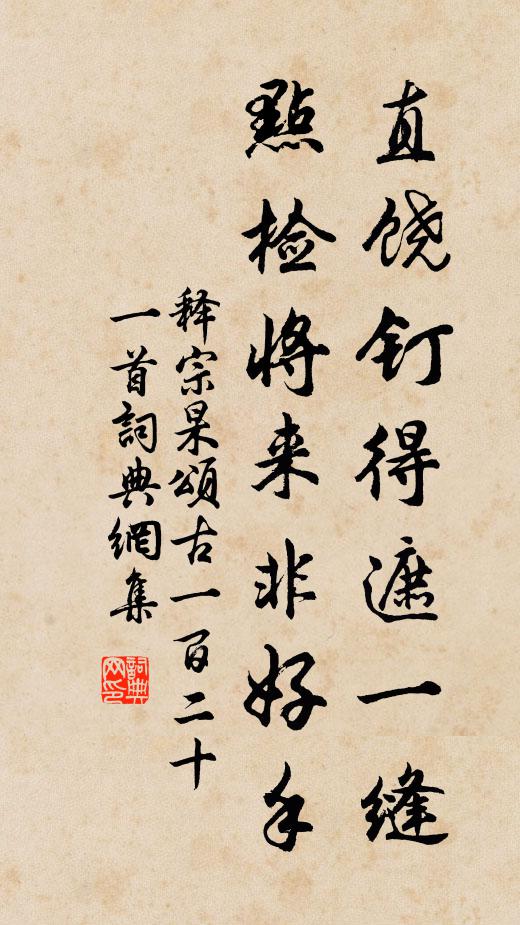 直饶钉得遮一缝
點检将来非好手
释宗杲頌古一百二十
一首詞典網集
詞典网印